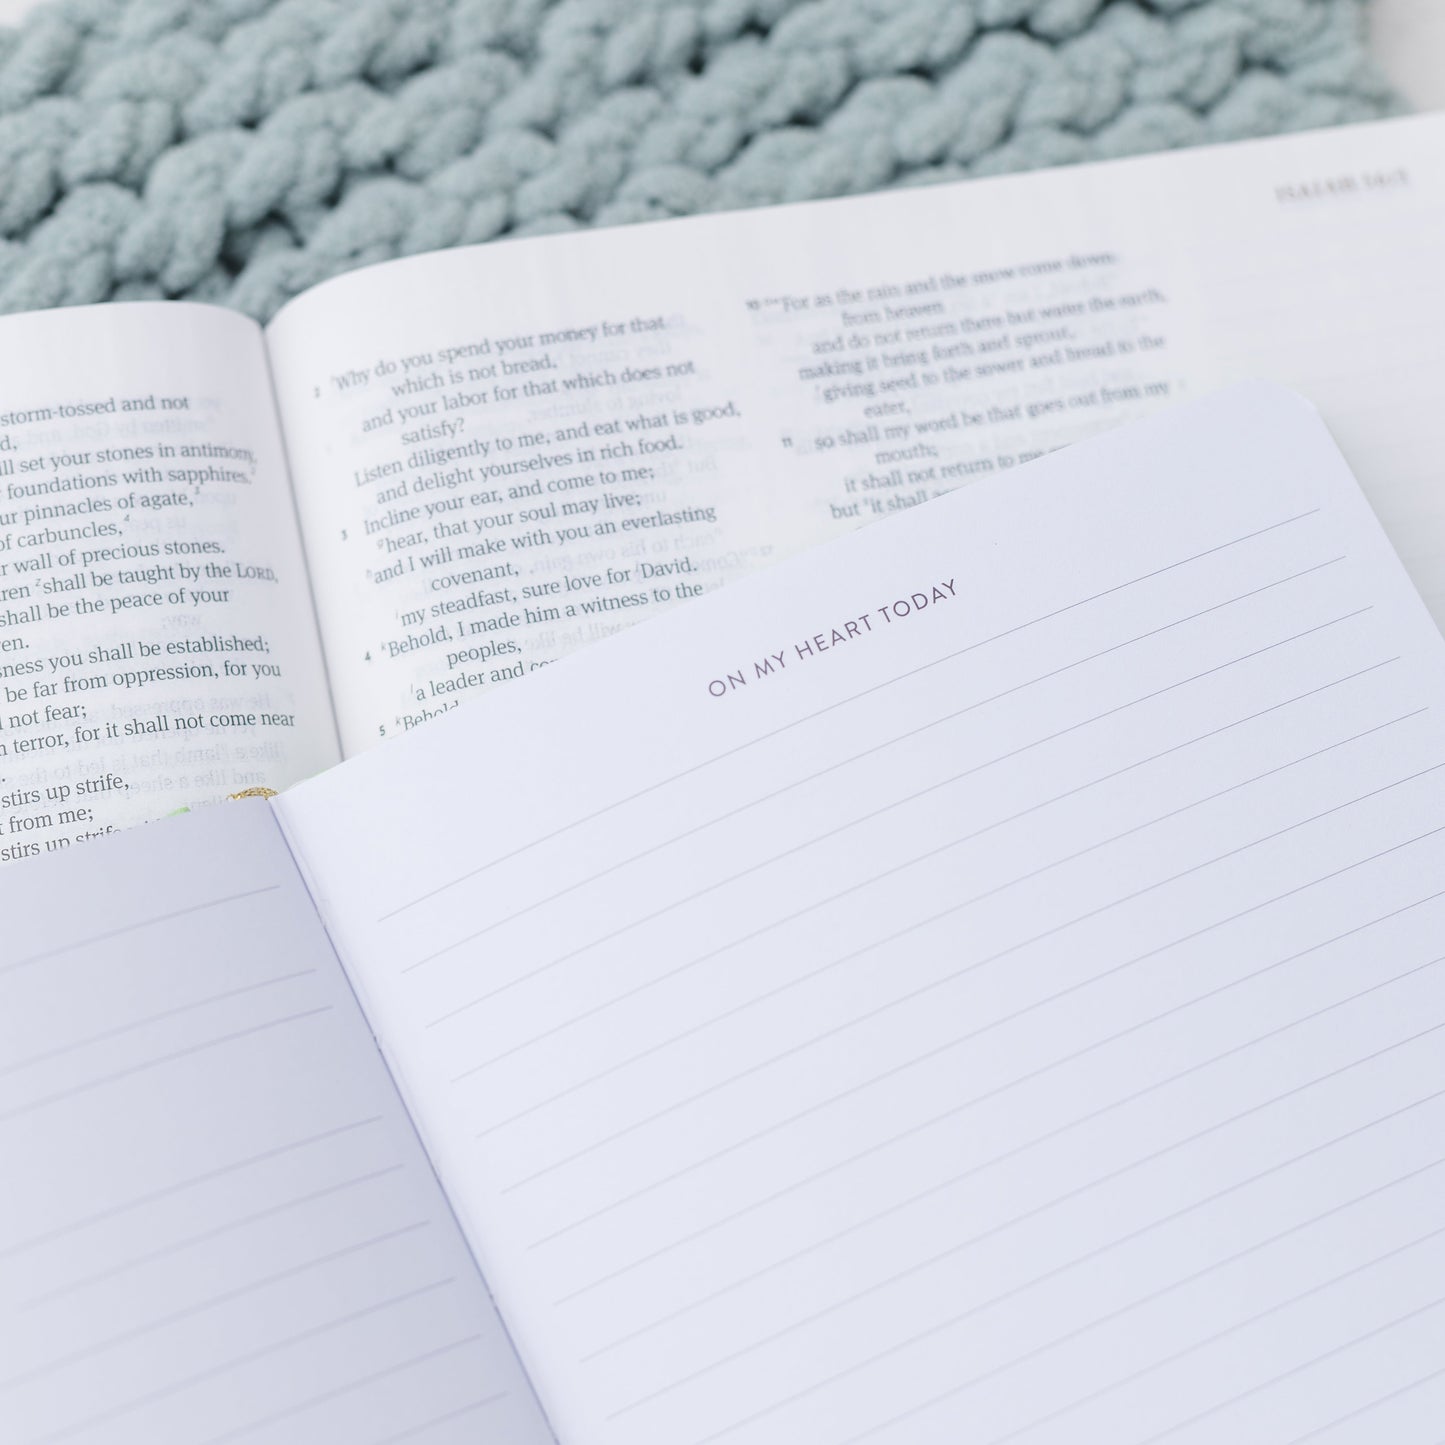 storm-tossed and not
d,
ll set your stones in antimony,
foundations with sapphires.²
ur pinnacles of agate,³
of carbuncles,⁴
r wall of precious stones.
ren ᶻshall be taught by the LORD,
shall be the peace of your
en.
sness you shall be established;
be far from oppression, for you
l not fear;
m terror, for it shall not come near
.
stirs up strife,
t from me;
stirs up strife
2 ᶠWhy do you spend your money for that
which is not bread,
and your labor for that which does not
satisfy?
Listen diligently to me, and eat what is good,
and delight yourselves in rich food.
3 Incline your ear, and come to me;
ᵍhear, that your soul may live;
ʰand I will make with you an everlasting
covenant,
ⁱmy steadfast, sure love for ʲDavid.
4 ᵏBehold, I made him a witness to the
peoples,
ˡa leader and
5 ᵏBehold
ISAIAH
10 For as the rain and the snow come down
from heaven
and do not return there but water the earth,
making it bring forth and sprout,
giving seed to the sower and bread to the
eater,
11 so shall my word be that goes out from my
mouth;
it shall not return to me
but it shall
ON MY HEART TODAY